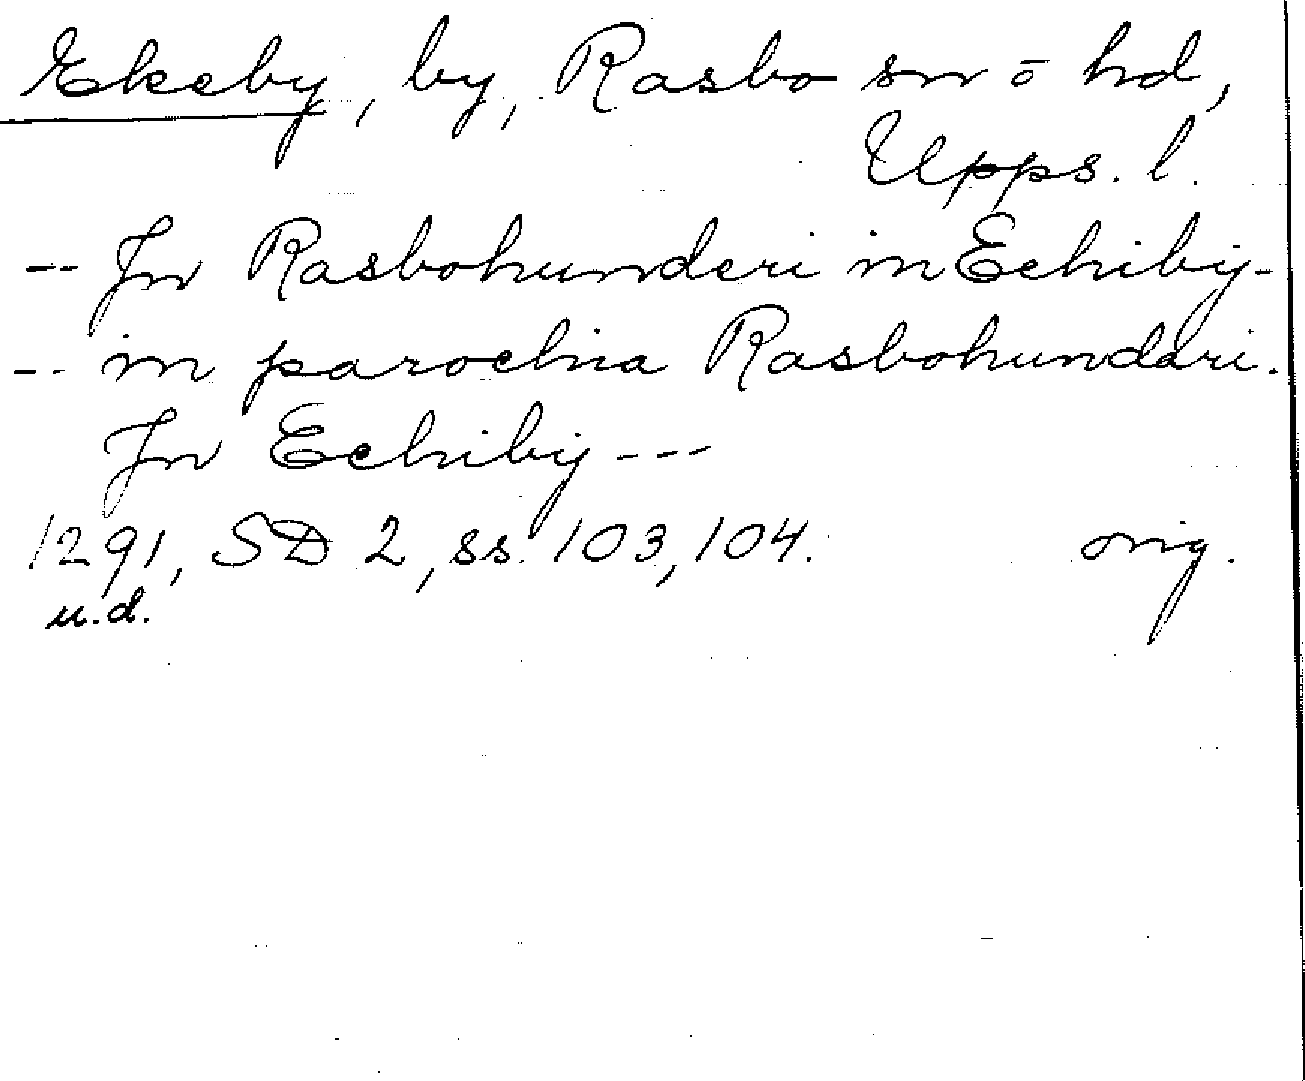 Ekeby, by, Rasbo sn o hd,
Upps. l.
-- Jn Rasbohunderi in Echiby-
-- in parochia Rasbohundari.
Jn Echiby ---
1291, SD 2, ss. 103, 104. orig.
u.d.